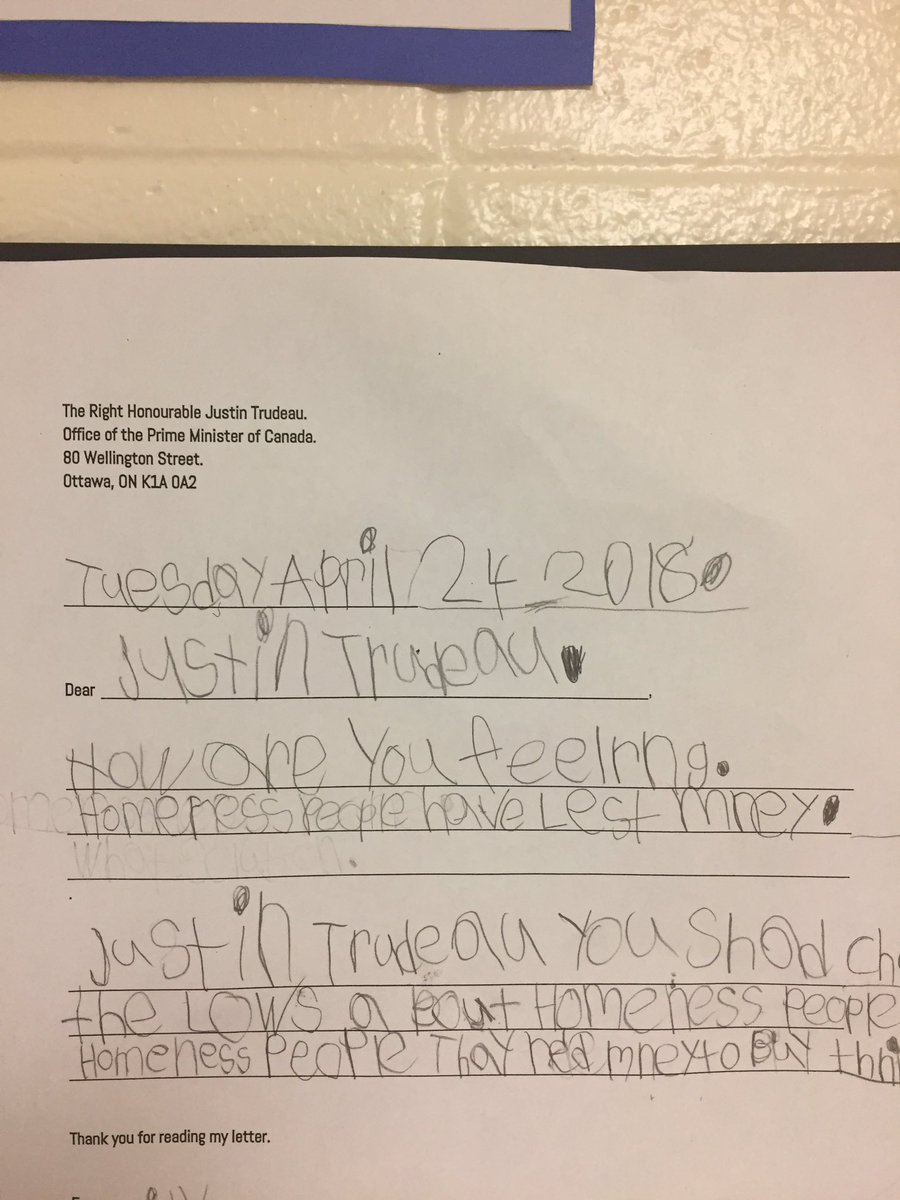 The Right Honourable Justin Trudeau.
Office of the Prime Minister of Canada.
80 Wellington Street.
Ottawa, ON K1A 0A2
Tuesday April 24 2018.
Dear Justin Trudeau.,
How are you feelrng.
Homeness people have Lest mney.
Justin Trudeau you shod ch
the Lows a bout Homeness people
Homeness people Thay ned mney to Buy thni
Thank you for reading my letter.